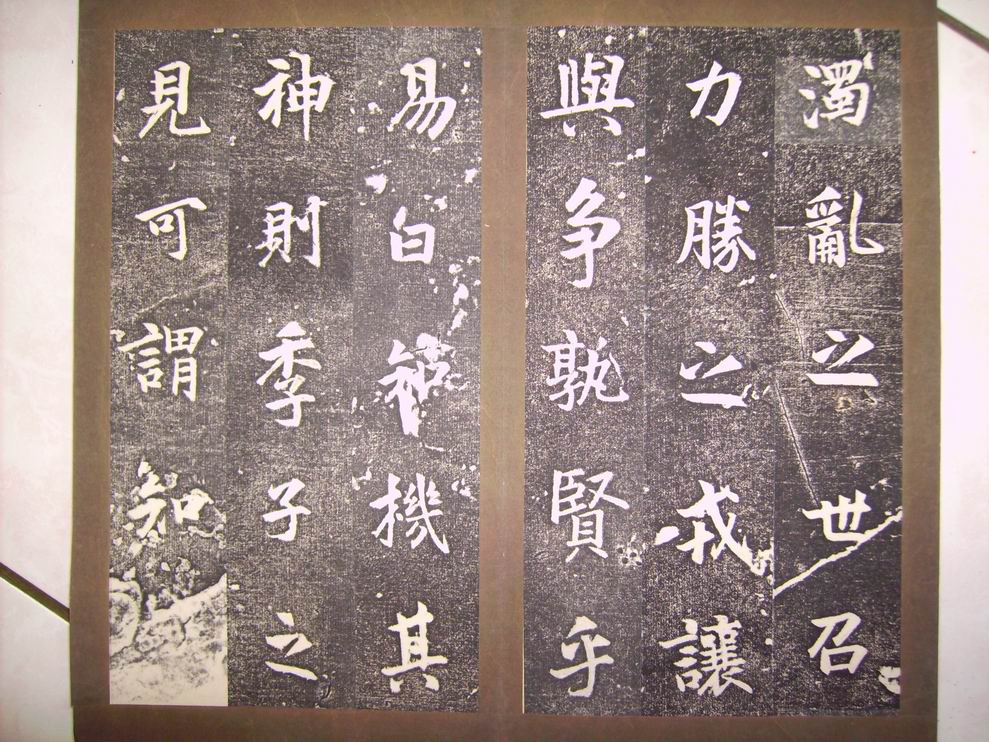 濁亂之世召
力勝之戎讓
與争孰賢乎
易白機其
神則季子之
見可謂知